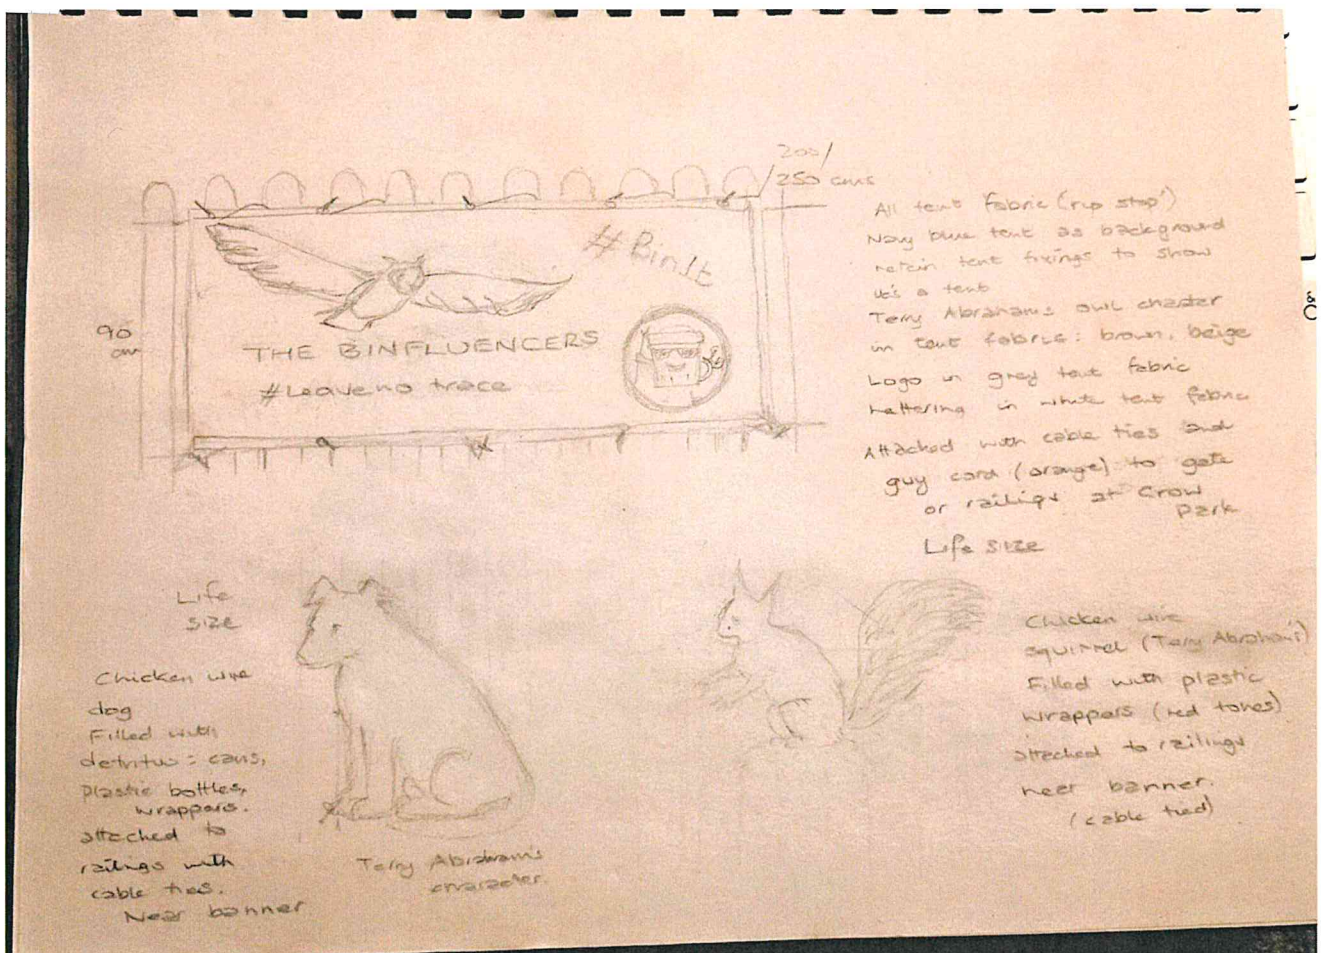 200/
250 cms
90
cm
#BinIt
THE BINFLUENCERS
#Leave no trace
All tent fabric (rip stop)
Navy blue tent as background
retain tent fixings to show
it's a tent
Terry Abrahams owl character
in tent fabric: brown, beige
Logo in grey tent fabric
lettering in white tent fabric
Attached with cable ties and
guy cord (orange) to gate
or railings at Crow
Park
Life size
Life
size
Chicken wire
dog
Filled with
detritus: cans,
plastic bottles,
wrappers.
attached to
railings with
cable ties.
Near banner
Terry Abraham's
character.
Chicken wire
squirrel (Terry Abraham's)
Filled with plastic
wrappers (red tones)
attached to railings
near banner.
(cable tied)